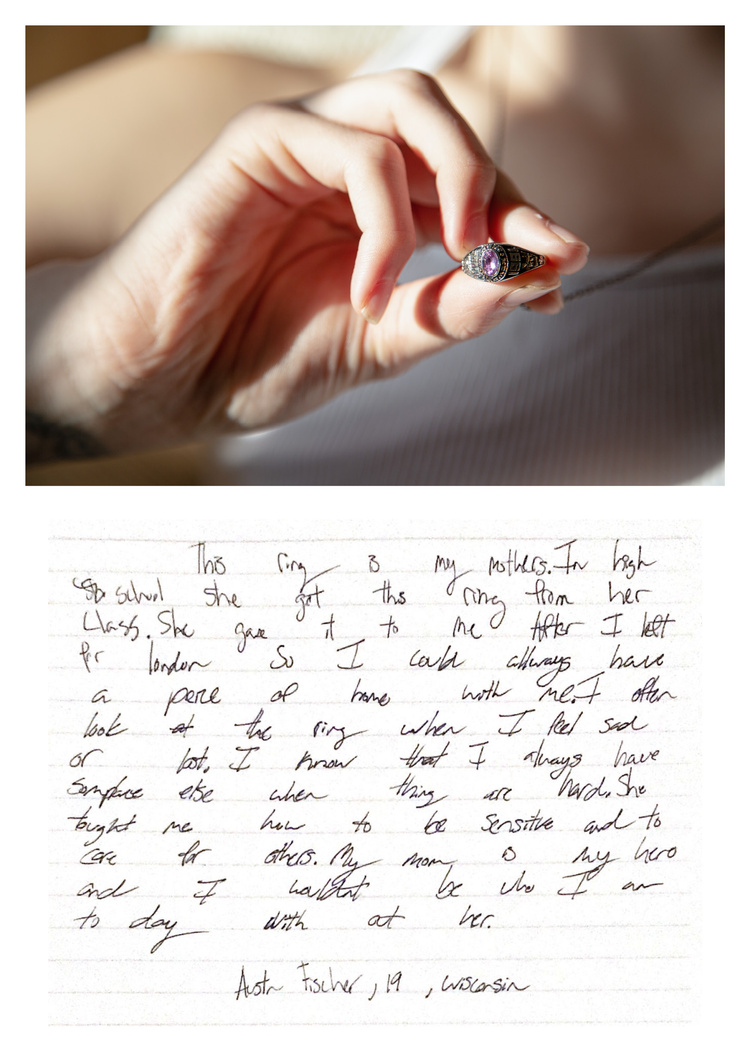 This ring is my mothers. In high
school she got this ring from her
class. She gave it to me After I left
for london So I could allways have
a piece of home with me. I often
look at the ring when I feel sad
or lost. I know that I always have
someplace else when thing are hard. She
tought me how to be sensitive and to
care for others. My mom is my hero
and I wouldnt be who I am
to day with out her.
Austin Fischer, 19, wisconsin